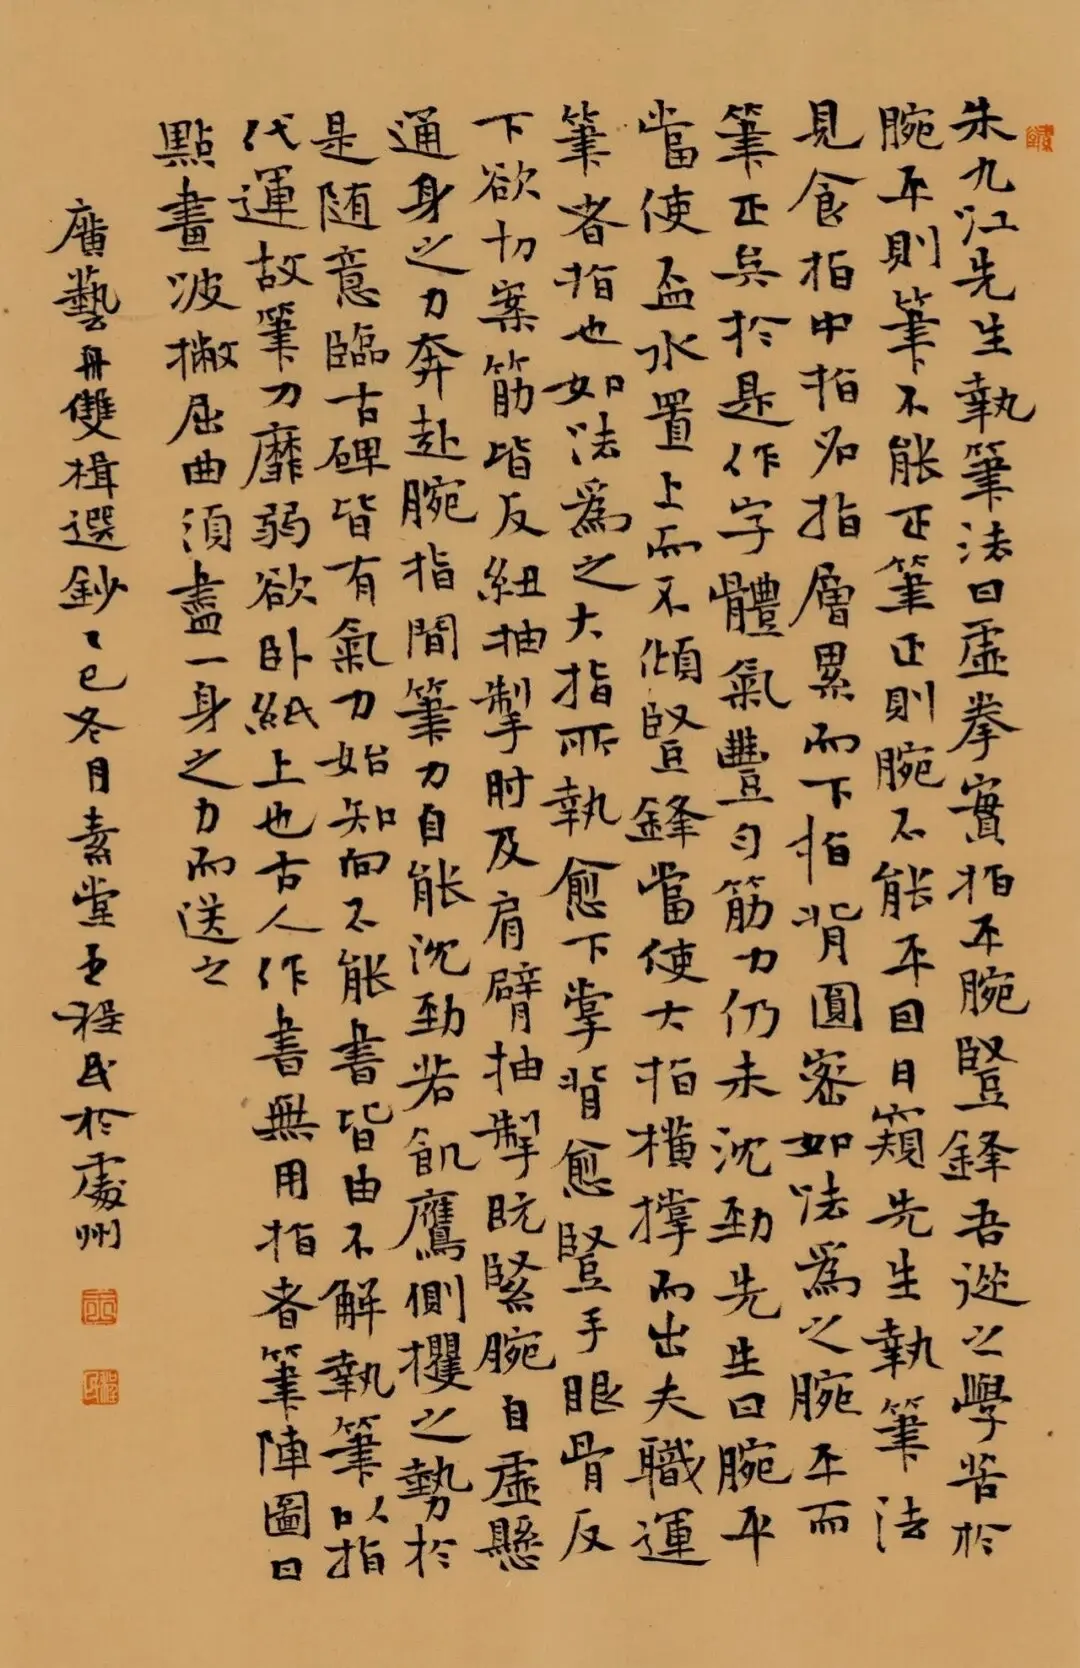 朱九江先生執筆法曰虛拳實指平腕豎鋒吾從之學苦於
腕平則筆不能正筆正則腕不能平因日窺先生執筆法
見食指中指名指層累而下指背圓密如法為之腕平而
筆正矣於是作字體氣豐勻筋力仍未沈勁先生曰腕平
當使盃水置上而不傾豎鋒當使大指橫撑而出夫職運
筆者指也如法為之大指所執愈下掌背愈豎手眼骨反
下欲切案筋皆反紐抽掣肘及肩臂抽掣既緊腕自虛懸
通身之力奔赴腕指間筆力自能沈勁若飢鷹側攫之勢於
是随意臨古碑皆有氣力始知向不能書皆由不解執筆以指
代運故筆力靡弱欲臥紙上也古人作書無用指者筆陣圖曰
點畫波撇屈曲須盡一身之力而送之
廣藝舟雙楫選鈔乙巳冬月素堂主程民於處州